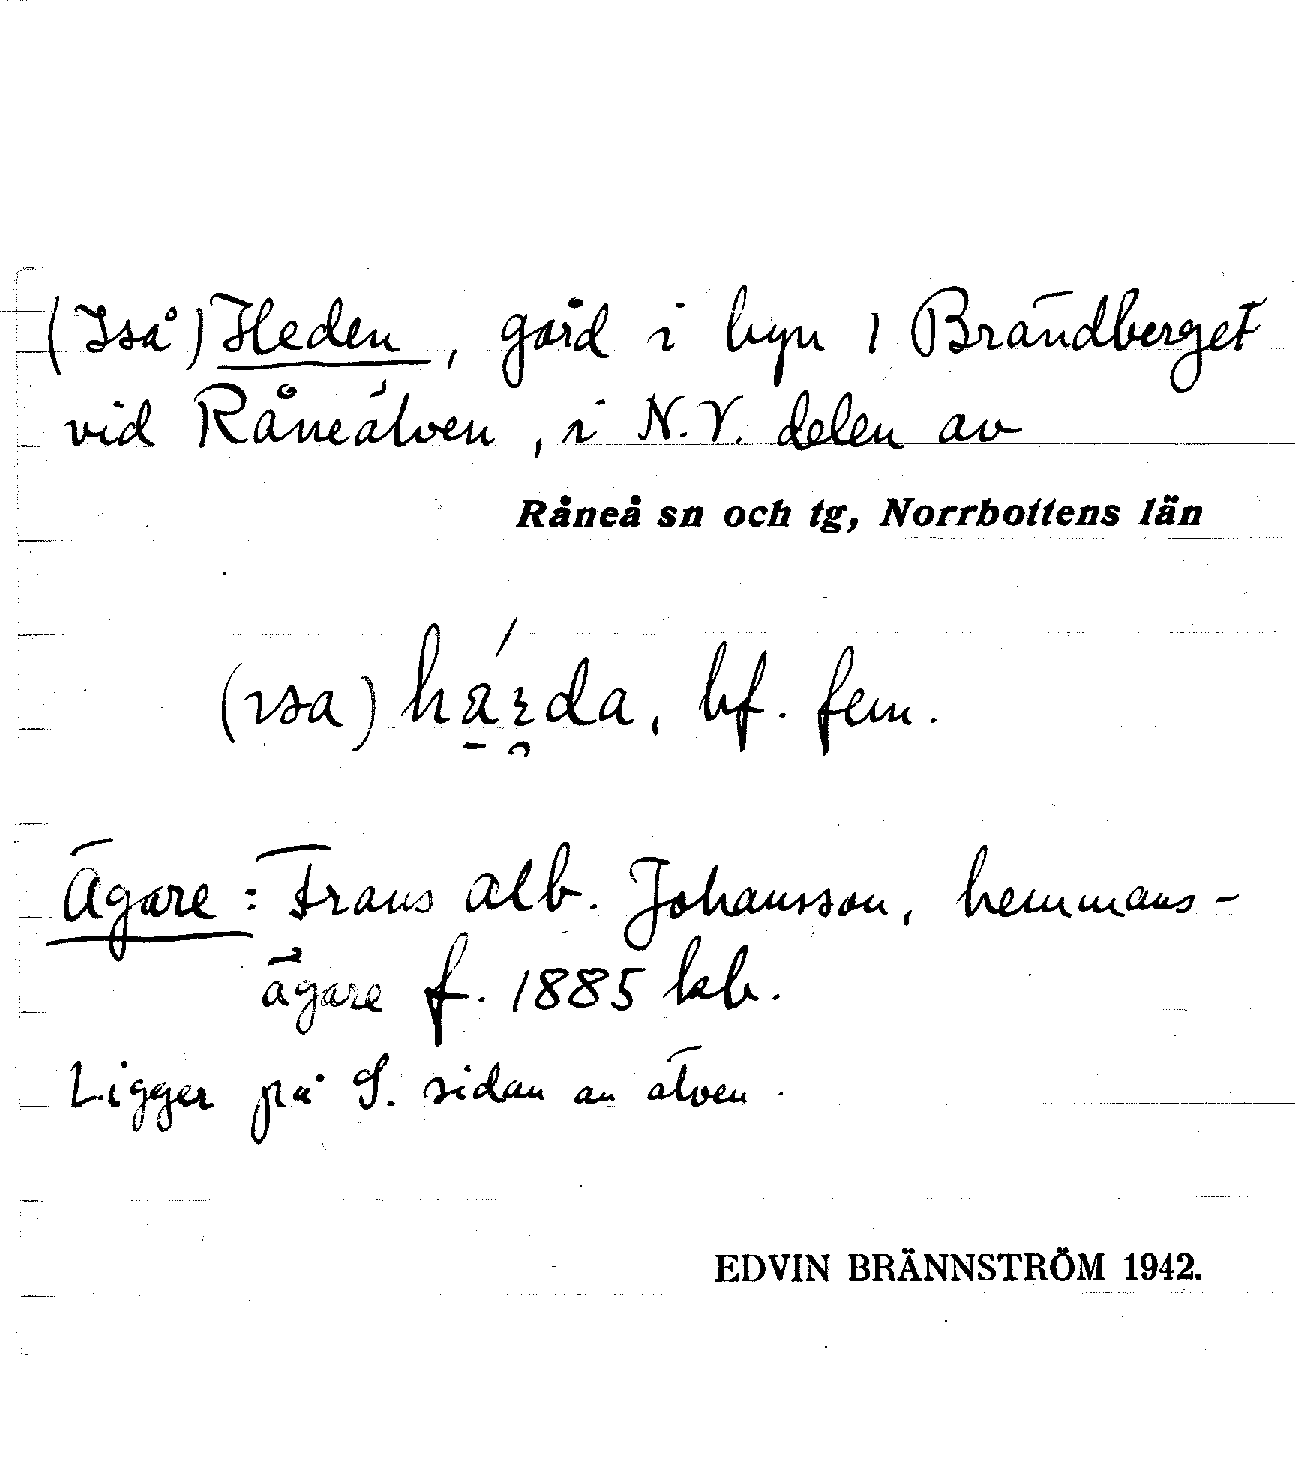 (Iså) Heden, gård i byn 1 Brändberget
vid Råneälven, i N.V. delen av
Råneå sn och tg, Norrbottens län
(ısa) bf. fem.
Ägare: Frans Alb. Johansson, hemmans-
ägare f. 1885 kb.
Ligger på S. sidan av älven.
EDVIN BRÄNNSTRÖM 1942.